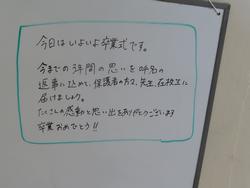 今日はいよいよ卒業式です。
今までの3年間の思いを呼名の
返事に込めて、保護者の方々、先生、在校生に
届けましょう。
たくさんの感動と思い出をありがとうございます
卒業おめでとう!!